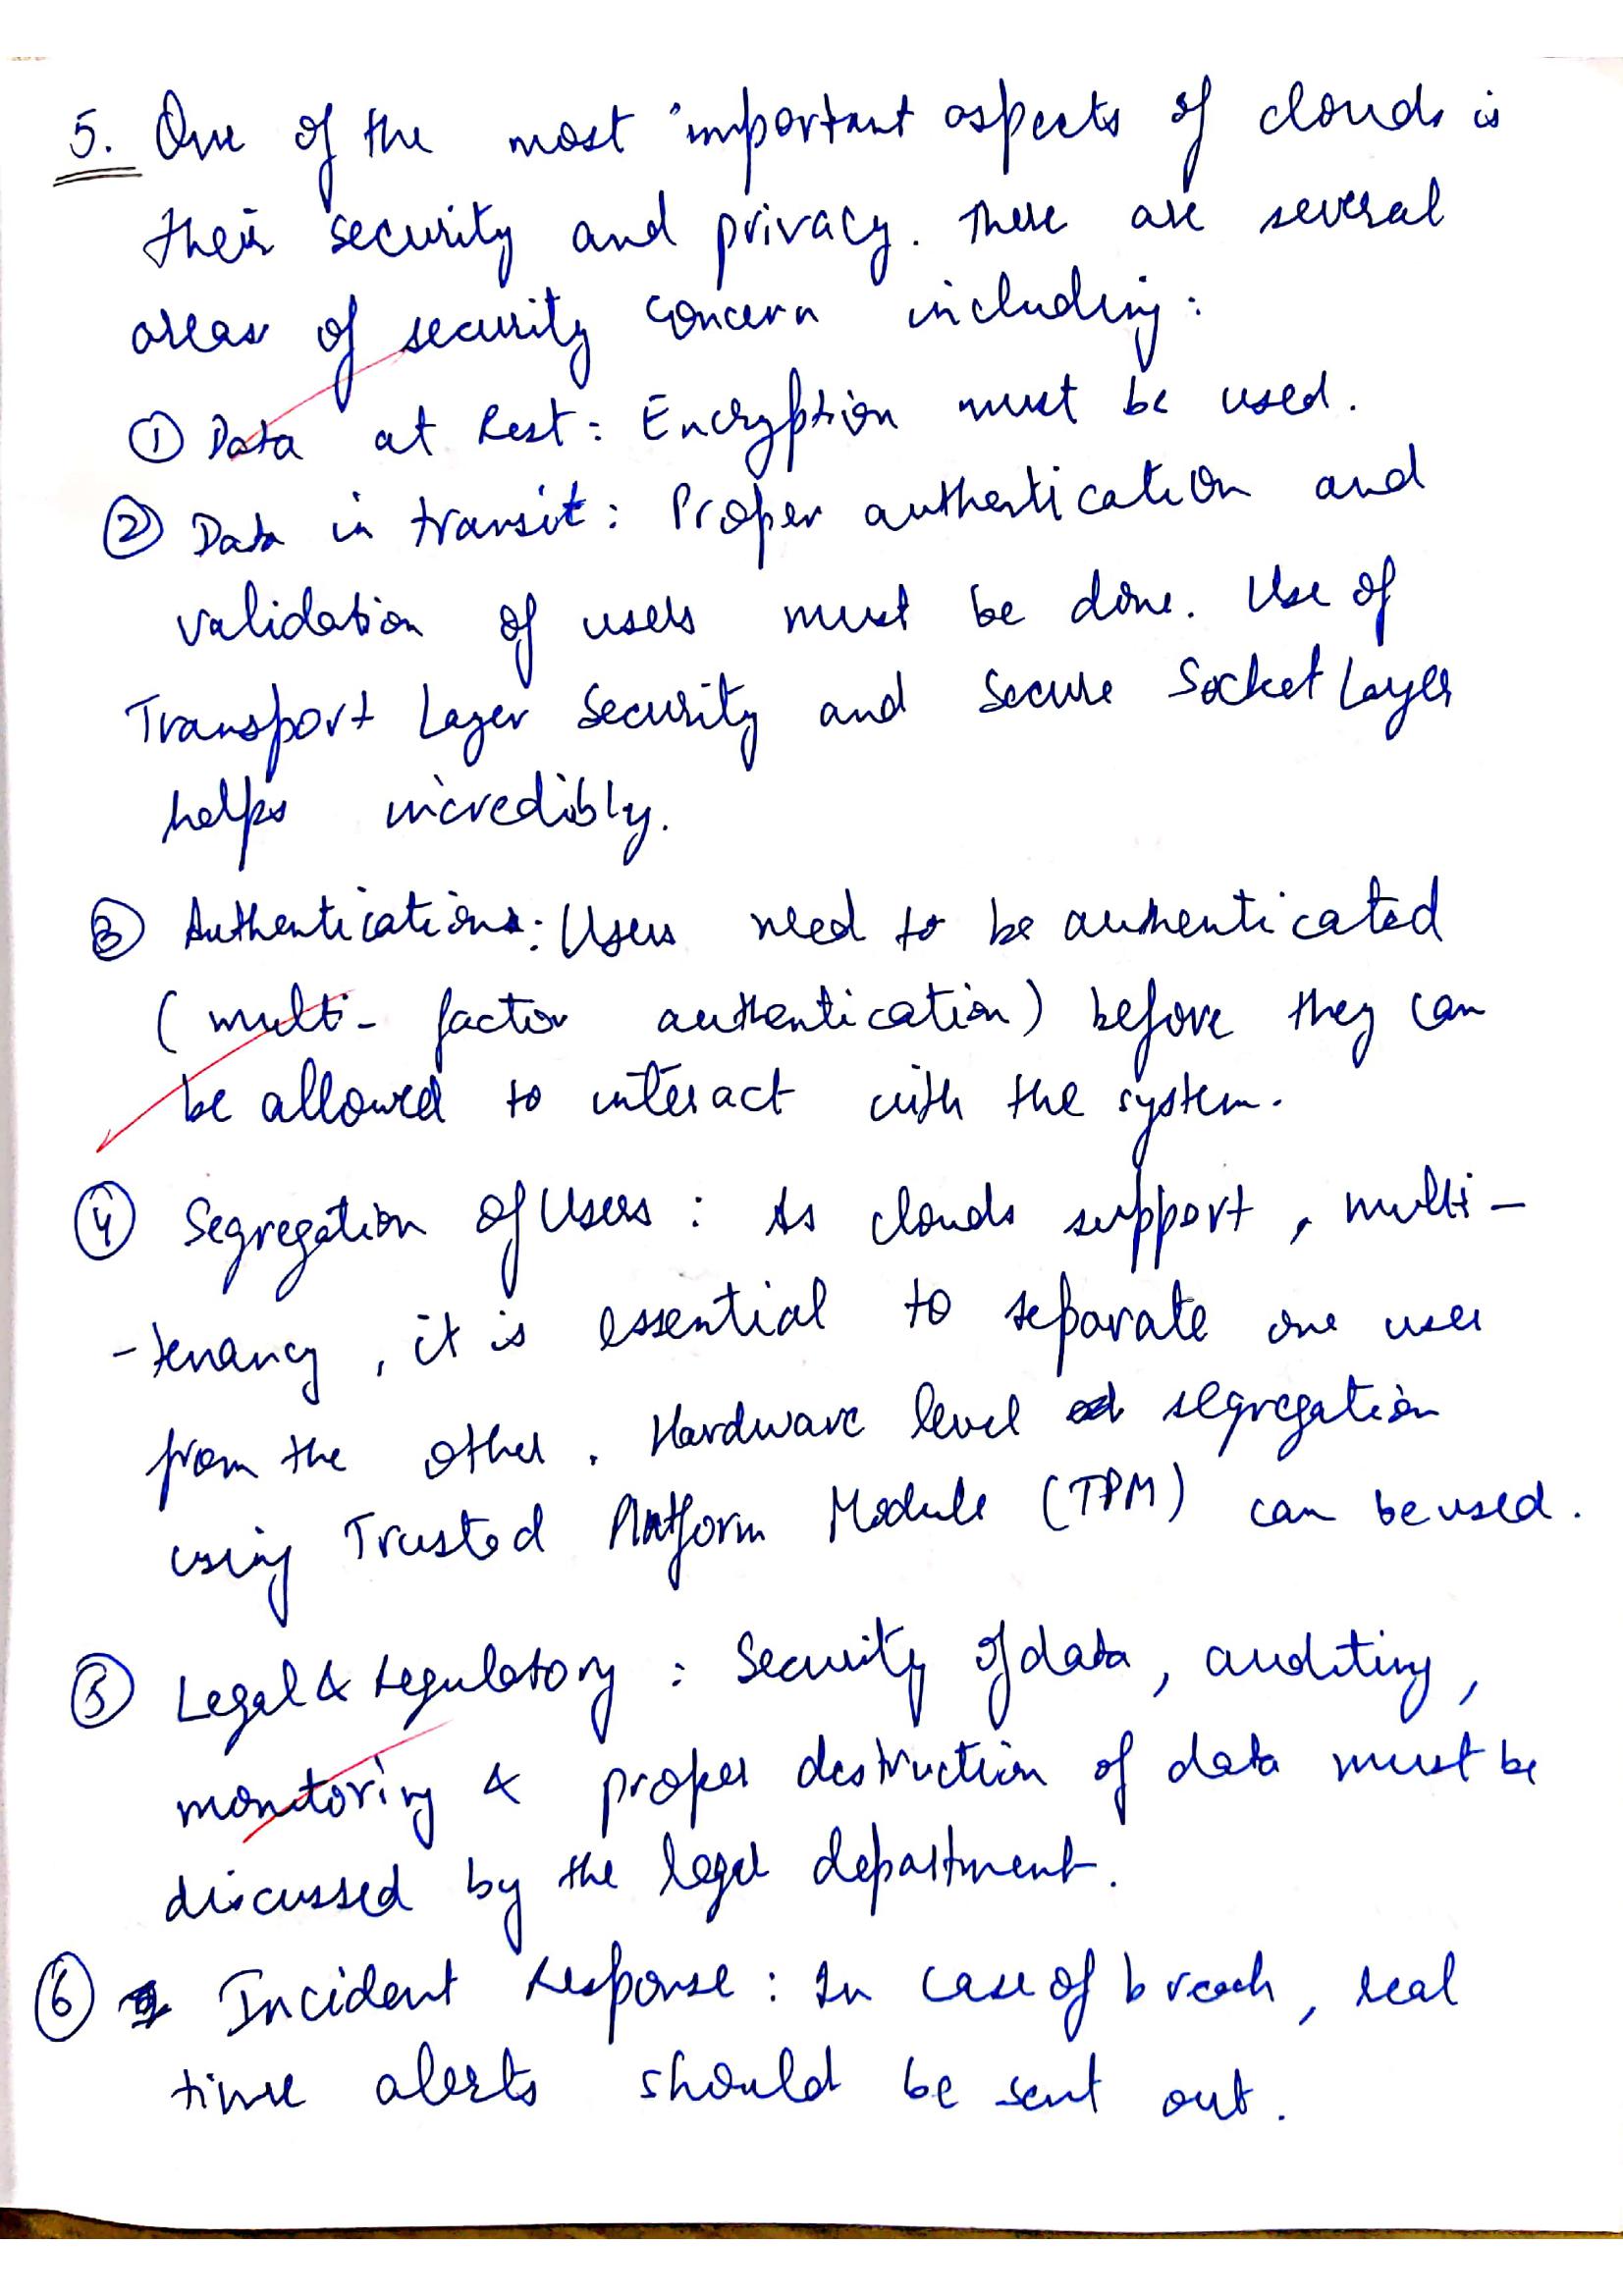 5. One of the most important aspects of clouds is
their security and privacy. There are several
areas of security concern including:
① Data at Rest: Encryption must be used.
② Data in transit: Proper authentication and
validation of users must be done. Use of
Transport Layer Security and Secure Socket Layer
helps incredibly.
③ Authentications: Users need to be authenticated
(multi-factor authentication) before they can
be allowed to interact with the system.
④ Segregation of Users: As clouds support, multi-
-tenancy, it is essential to separate one user
from the other. Hardware level segregation
using Trusted Platform Module (TPM) can be used.
⑤ Legal & regulatory: Security of data, auditing,
monitoring & proper destruction of data must be
discussed by the legal department.
⑥ Incident Response: In case of breach, real
time alerts should be sent out.